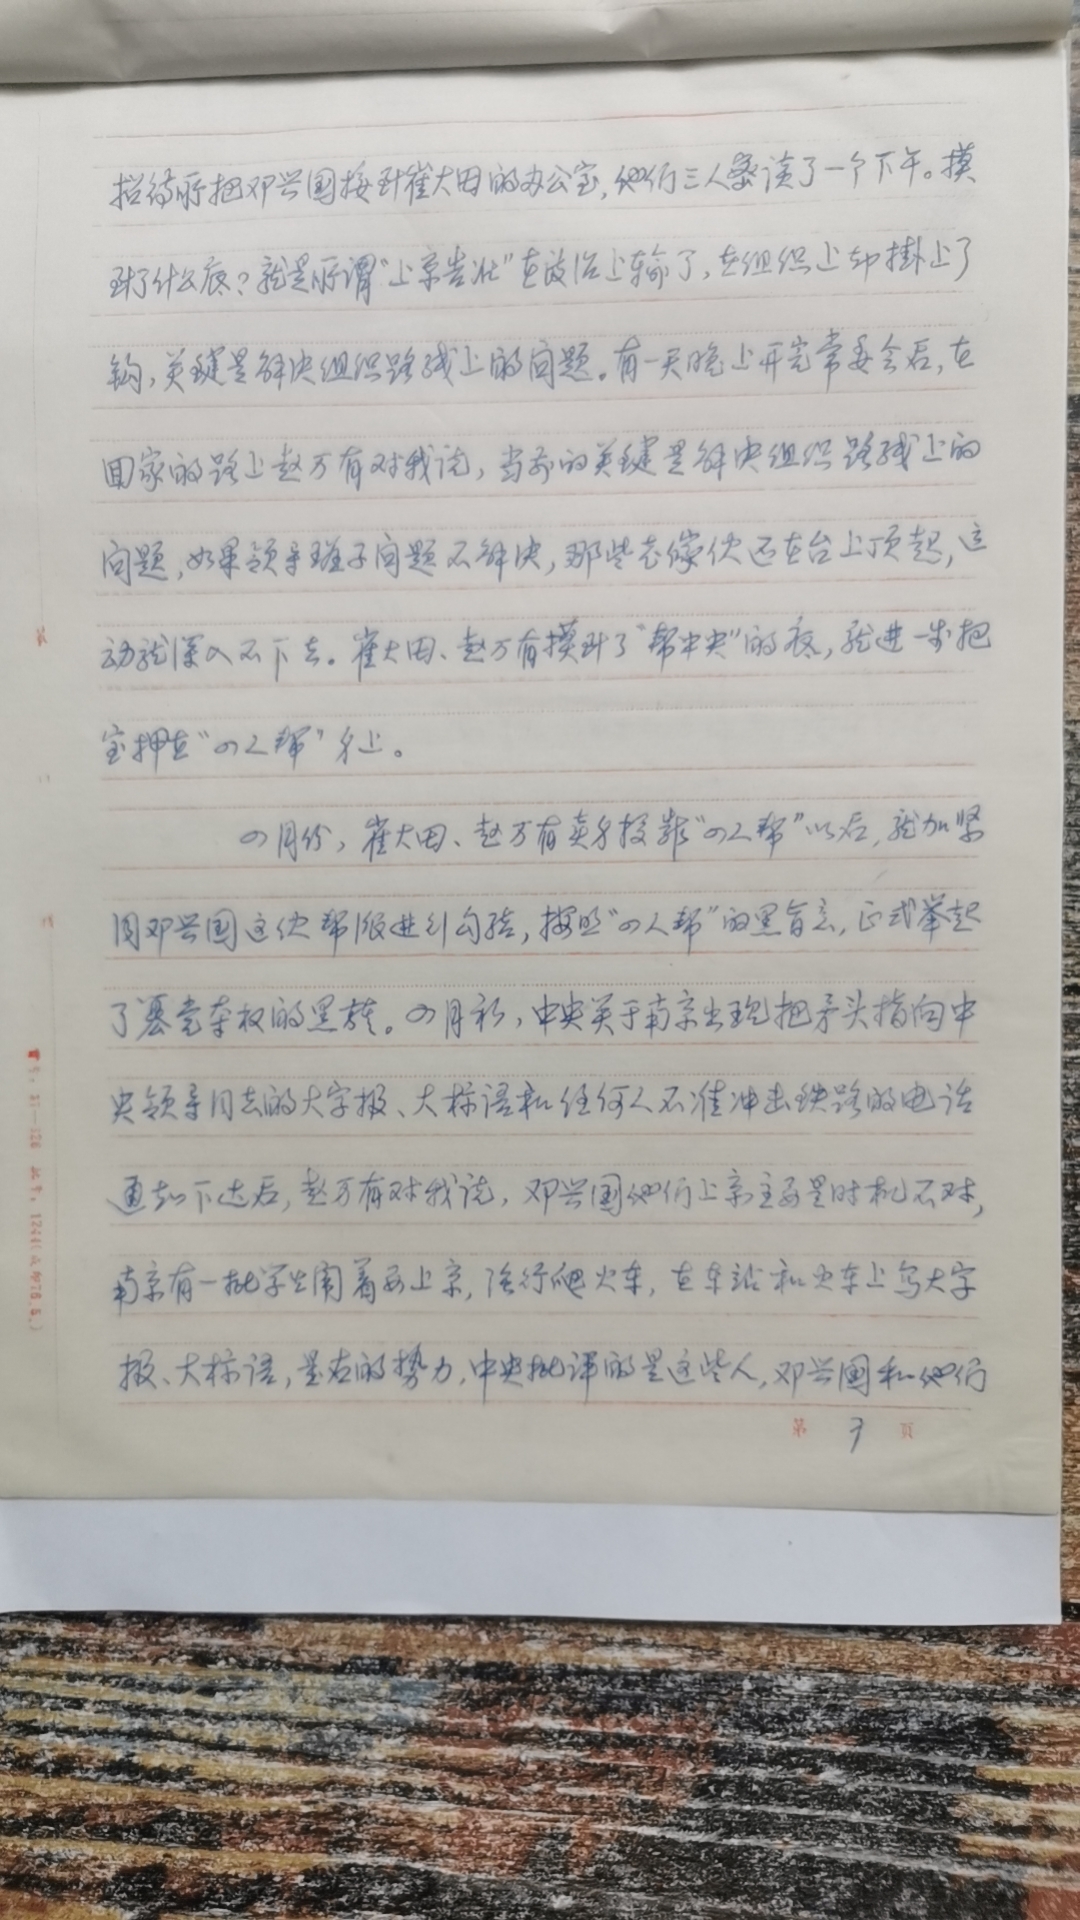 招待所把邓兴国接到崔大田的办公室,他们三人密谈了一个下午。摸
到了什么底?就是所谓“上京告状”在政治上输了,在组织上却掛上了
钩,关键是解决组织路线上的问题。有一天晚上开完常委会后,在
回家的路上赵万有对我说,当前的关键是解决组织路线上的
问题,如果领导班子问题不解决,那些老傢伙还在台上顶起,运
动就深入不下去。崔大田、赵万有摸到了“帮中央”的底,就进一步把
宝押在“四人帮”身上。
四月份,崔大田、赵万有卖身投靠“四人帮”以后,就加紧
同邓兴国这伙帮派进行勾结,按照“四人帮”的黑旨意,正式举起
了篡党夺权的黑旗。四月初,中央关于南京出现把矛头指向中
央领导同志的大字报、大标语和任何人不准冲击铁路的电话
通知下达后,赵万有对我说,邓兴国他们上京主要是时机不对,
南京有一批学生闹着要上京,强行爬火车,在车站和火车上写大字
报、大标语,是右的势力,中央批评的是这些人,邓兴国和他们
第 3 页